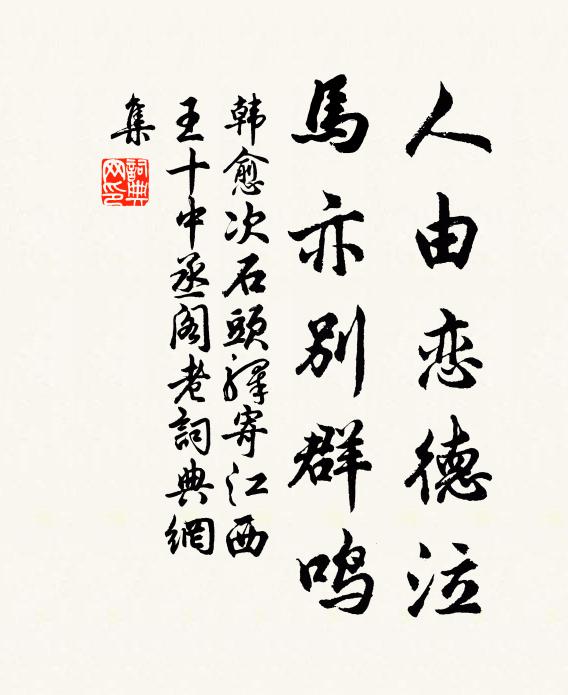 人由恋德泣
馬亦别群鸣
韩愈次石頭驛寄江西
王十中丞阁老詞典網
集
詞典
网印